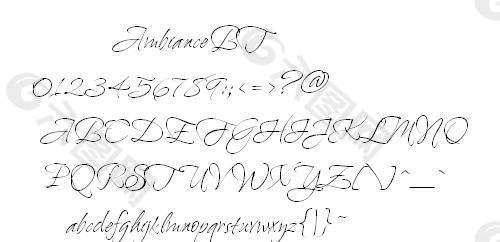 Ambiance BT
0123456789:;<=>?@
ABCDEFGHIJKLMNO
PQRSTUVWXYZ[\]^_`
abcdefghijklmnopqrstuvwxyz{|}~